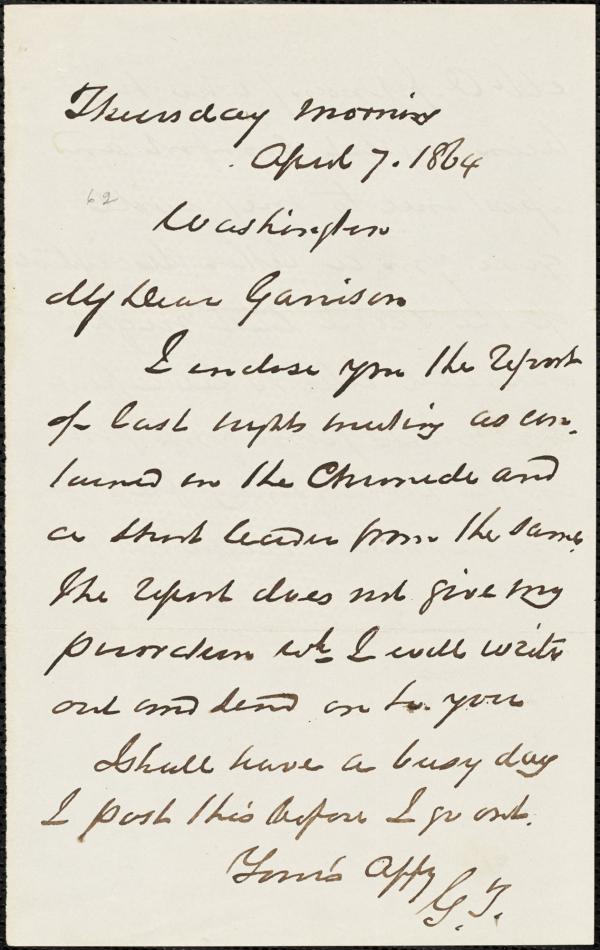 Thursday Morning
April 7. 1864
62
Washington
My Dear Garrison
I enclose you the report
of last nights meeting as con-
tained in the Chronicle and
a short leader from the same.
The report does not give my
peroration wh. I will write
out and send on to you
I shall have a busy day
I post this before I go out.
Yours affy
G. T.